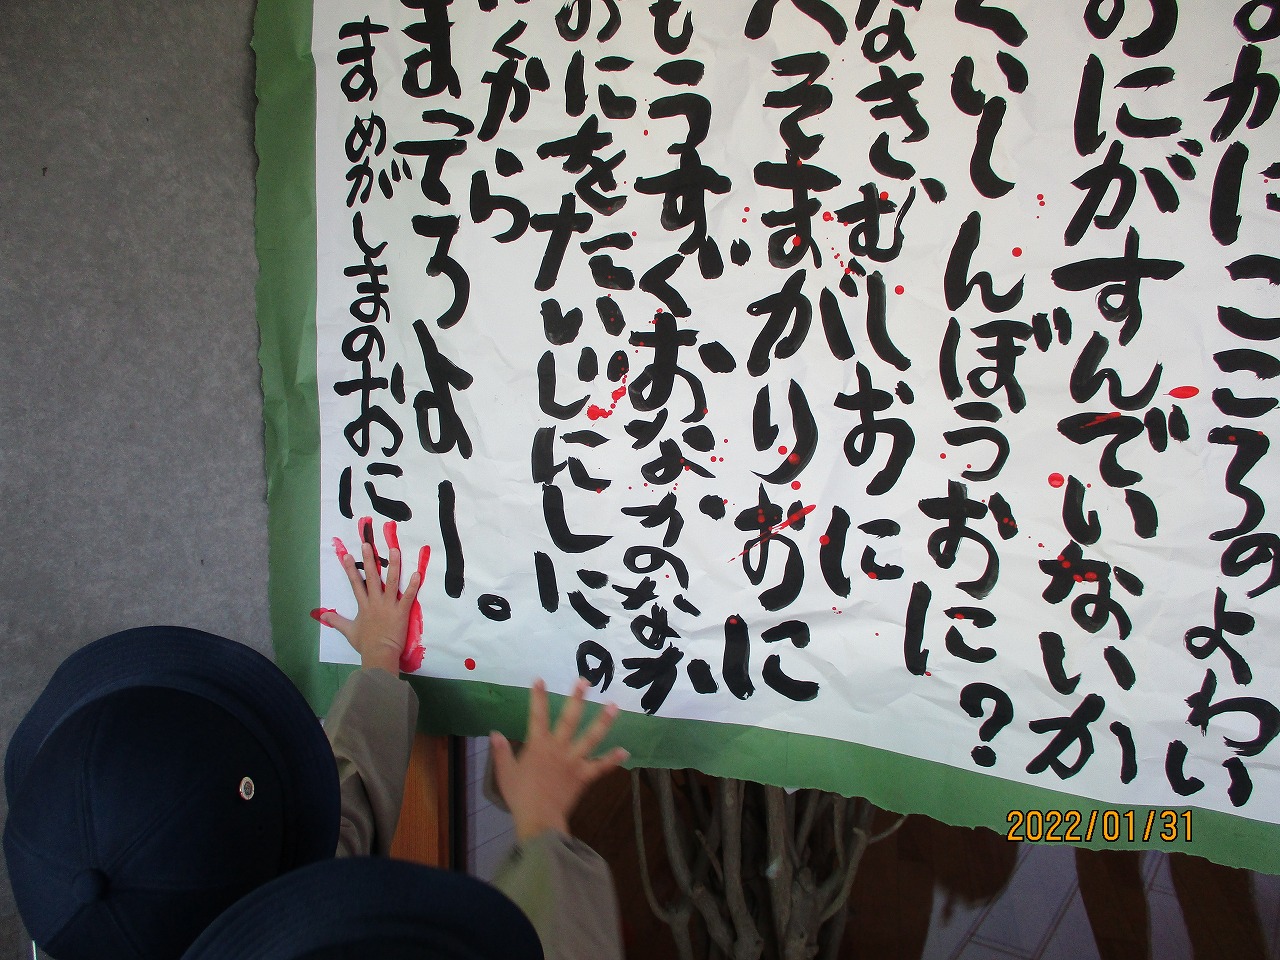 かにこころのよわい
おにがすんでいないか
くいしんぼうおに？
なきむしおに
へそまがりおに
もうすぐおなかのなかの
おにをたいじにしに
くから
まってろよー。
めがしまのおに
2022/01/31